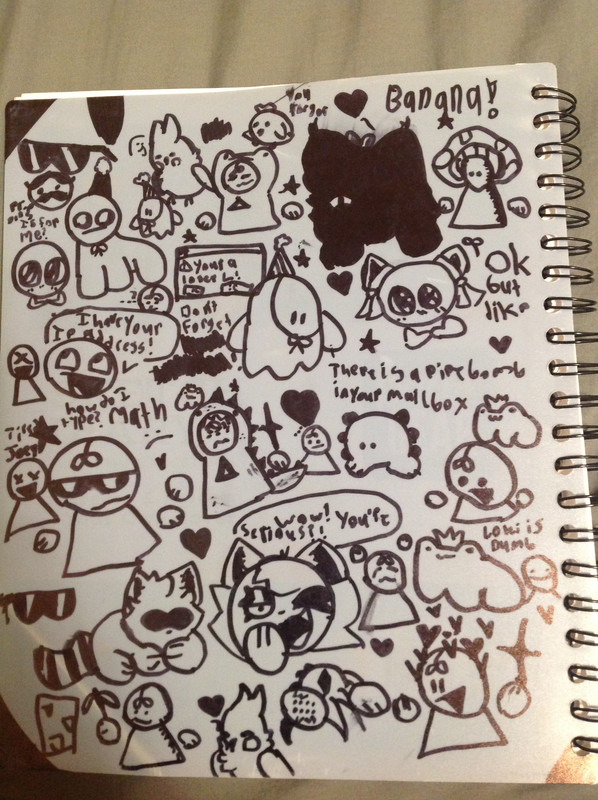 You
forgor
Banana!
It for
me!
Your a
loser L!
Ok
but
like
Don't
Forget
I have your
Ip address!
There is a pipe bomb
in your mailbox
how do I
type?
Math
Joey
Wow! You're
serious?!
Loki is
Dumb